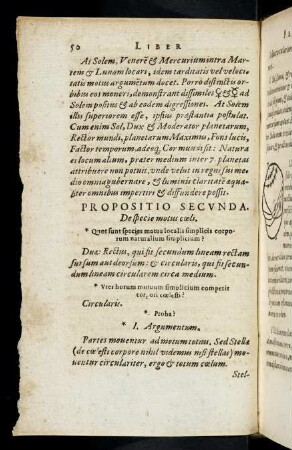 50 LIBER
At Solem, Venerē & Mercurium intra Mar-
tem & Lunam locari, idem tarditatis vel veloci-
tatis motus argumētum docet. Porrò distinctis or-
bibus eos moneri, demonstrant dissimiles ☿ & ♀ ad
Solem positus & ab eodem digressiones. At Solem
illis superiorem esse, ipsius præstantia postulat.
Cum enim Sol, Dux & Moderator planetarum,
Rector mundi, planetarum Maximus, Fons lucis,
Factor temporum adeoq, Cor mundi sit: Natura
ei locum alium, præter medium inter 7. planetas
attribuere non potuit, vnde velut in regni sui me-
dio omnia gubernare, & luminis claritatē æqua-
liter omnibus impertiri & diffundere possit.
PROPOSITIO SECVNDA.
De specie motus cœli.
* Quot sunt species motus localis simplicis corpo-
rum naturalium simplicium?
Duæ: Rectus, qui fit secundum lineam rectam
sursum aut deorsum: & circularis, qui fit secun-
dum lineam circularem circa medium.
* Vter horum motuum simplicium competit
cor, ori cœlesti?
Circularis.
* Proba?
* I. Argumentum.
Partes mouentur ad motum totius. Sed Stellæ
(de cœlesti corpore nihil videmus nisi stellas) mo-
uentur circulariter, ergo & totum cœlum.
Stel-